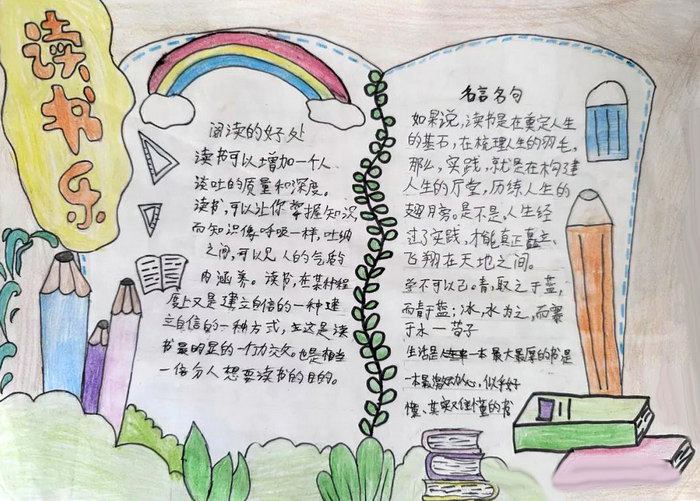 读书乐
阅读的好处
读书可以增加一个人
谈吐的质量和深度。
读书,可以让你掌握知识,
而知识像呼吸一样,吐纳
之间,可以见人的气质与
内涵养。读书,在某种程
度上又是建立自信的一种建
立自信的一种方式,这是读
书最明显的一个功效。也是相当
一部分人想要读书的目的。
名言名句
如果说,读书是在奠定人生
的基石,在梳理人生的羽毛,
那么,实践,就是在构建
人生的厅堂,历练人生的
翅膀。是不是,人生经
过了实践,才能真正矗立、
飞翔在天地之间。
学不可以已。青,取之于蓝,
而青于蓝;冰,水为之,而寒
于水一荀子
生活是一本最大最厚的书是
一本最激动心,似乎好
懂、其实又难懂的书